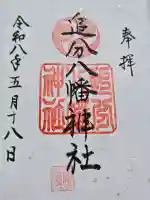 奉拝
追分八幡神社
令和八年五月十八日